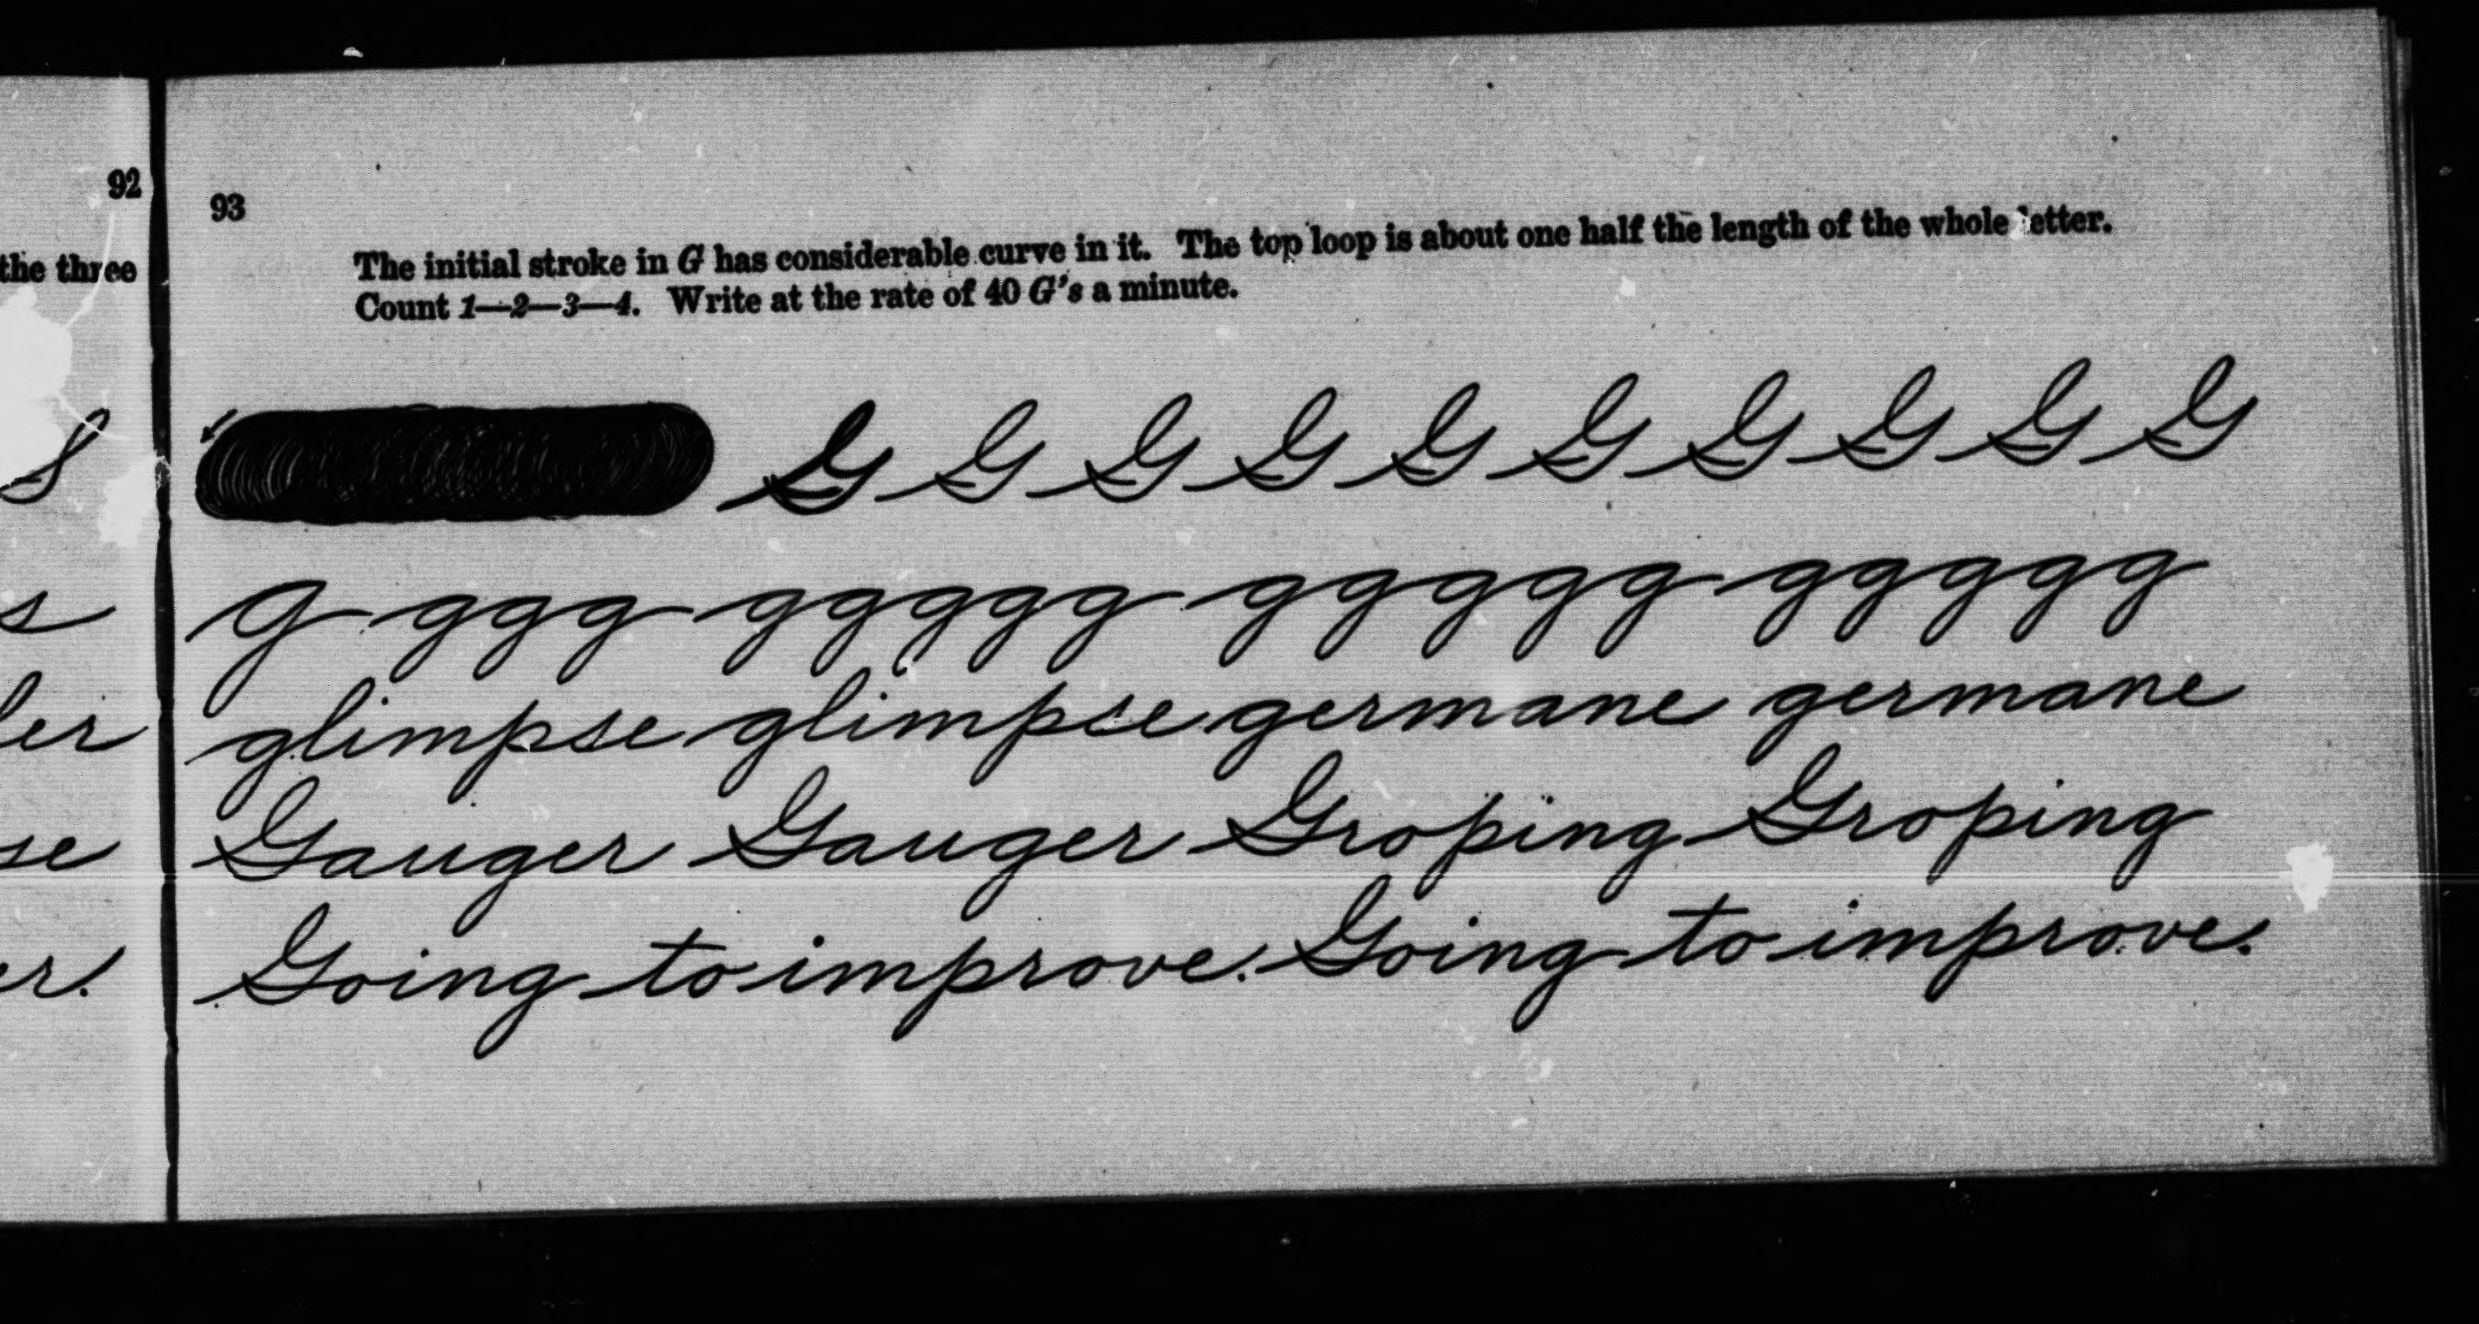 92
the three
s
ler
se
er.
93
The initial stroke in G has considerable curve in it. The top loop is about one half the length of the whole letter.
Count 1—2—3—4. Write at the rate of 40 G's a minute.
G G G G G G G G G G
g g g g g g g g g g g g g g g g g g g
glimpse glimpse germane germane
Gauger Gauger Groping Groping
Going to improve. Going to improve.